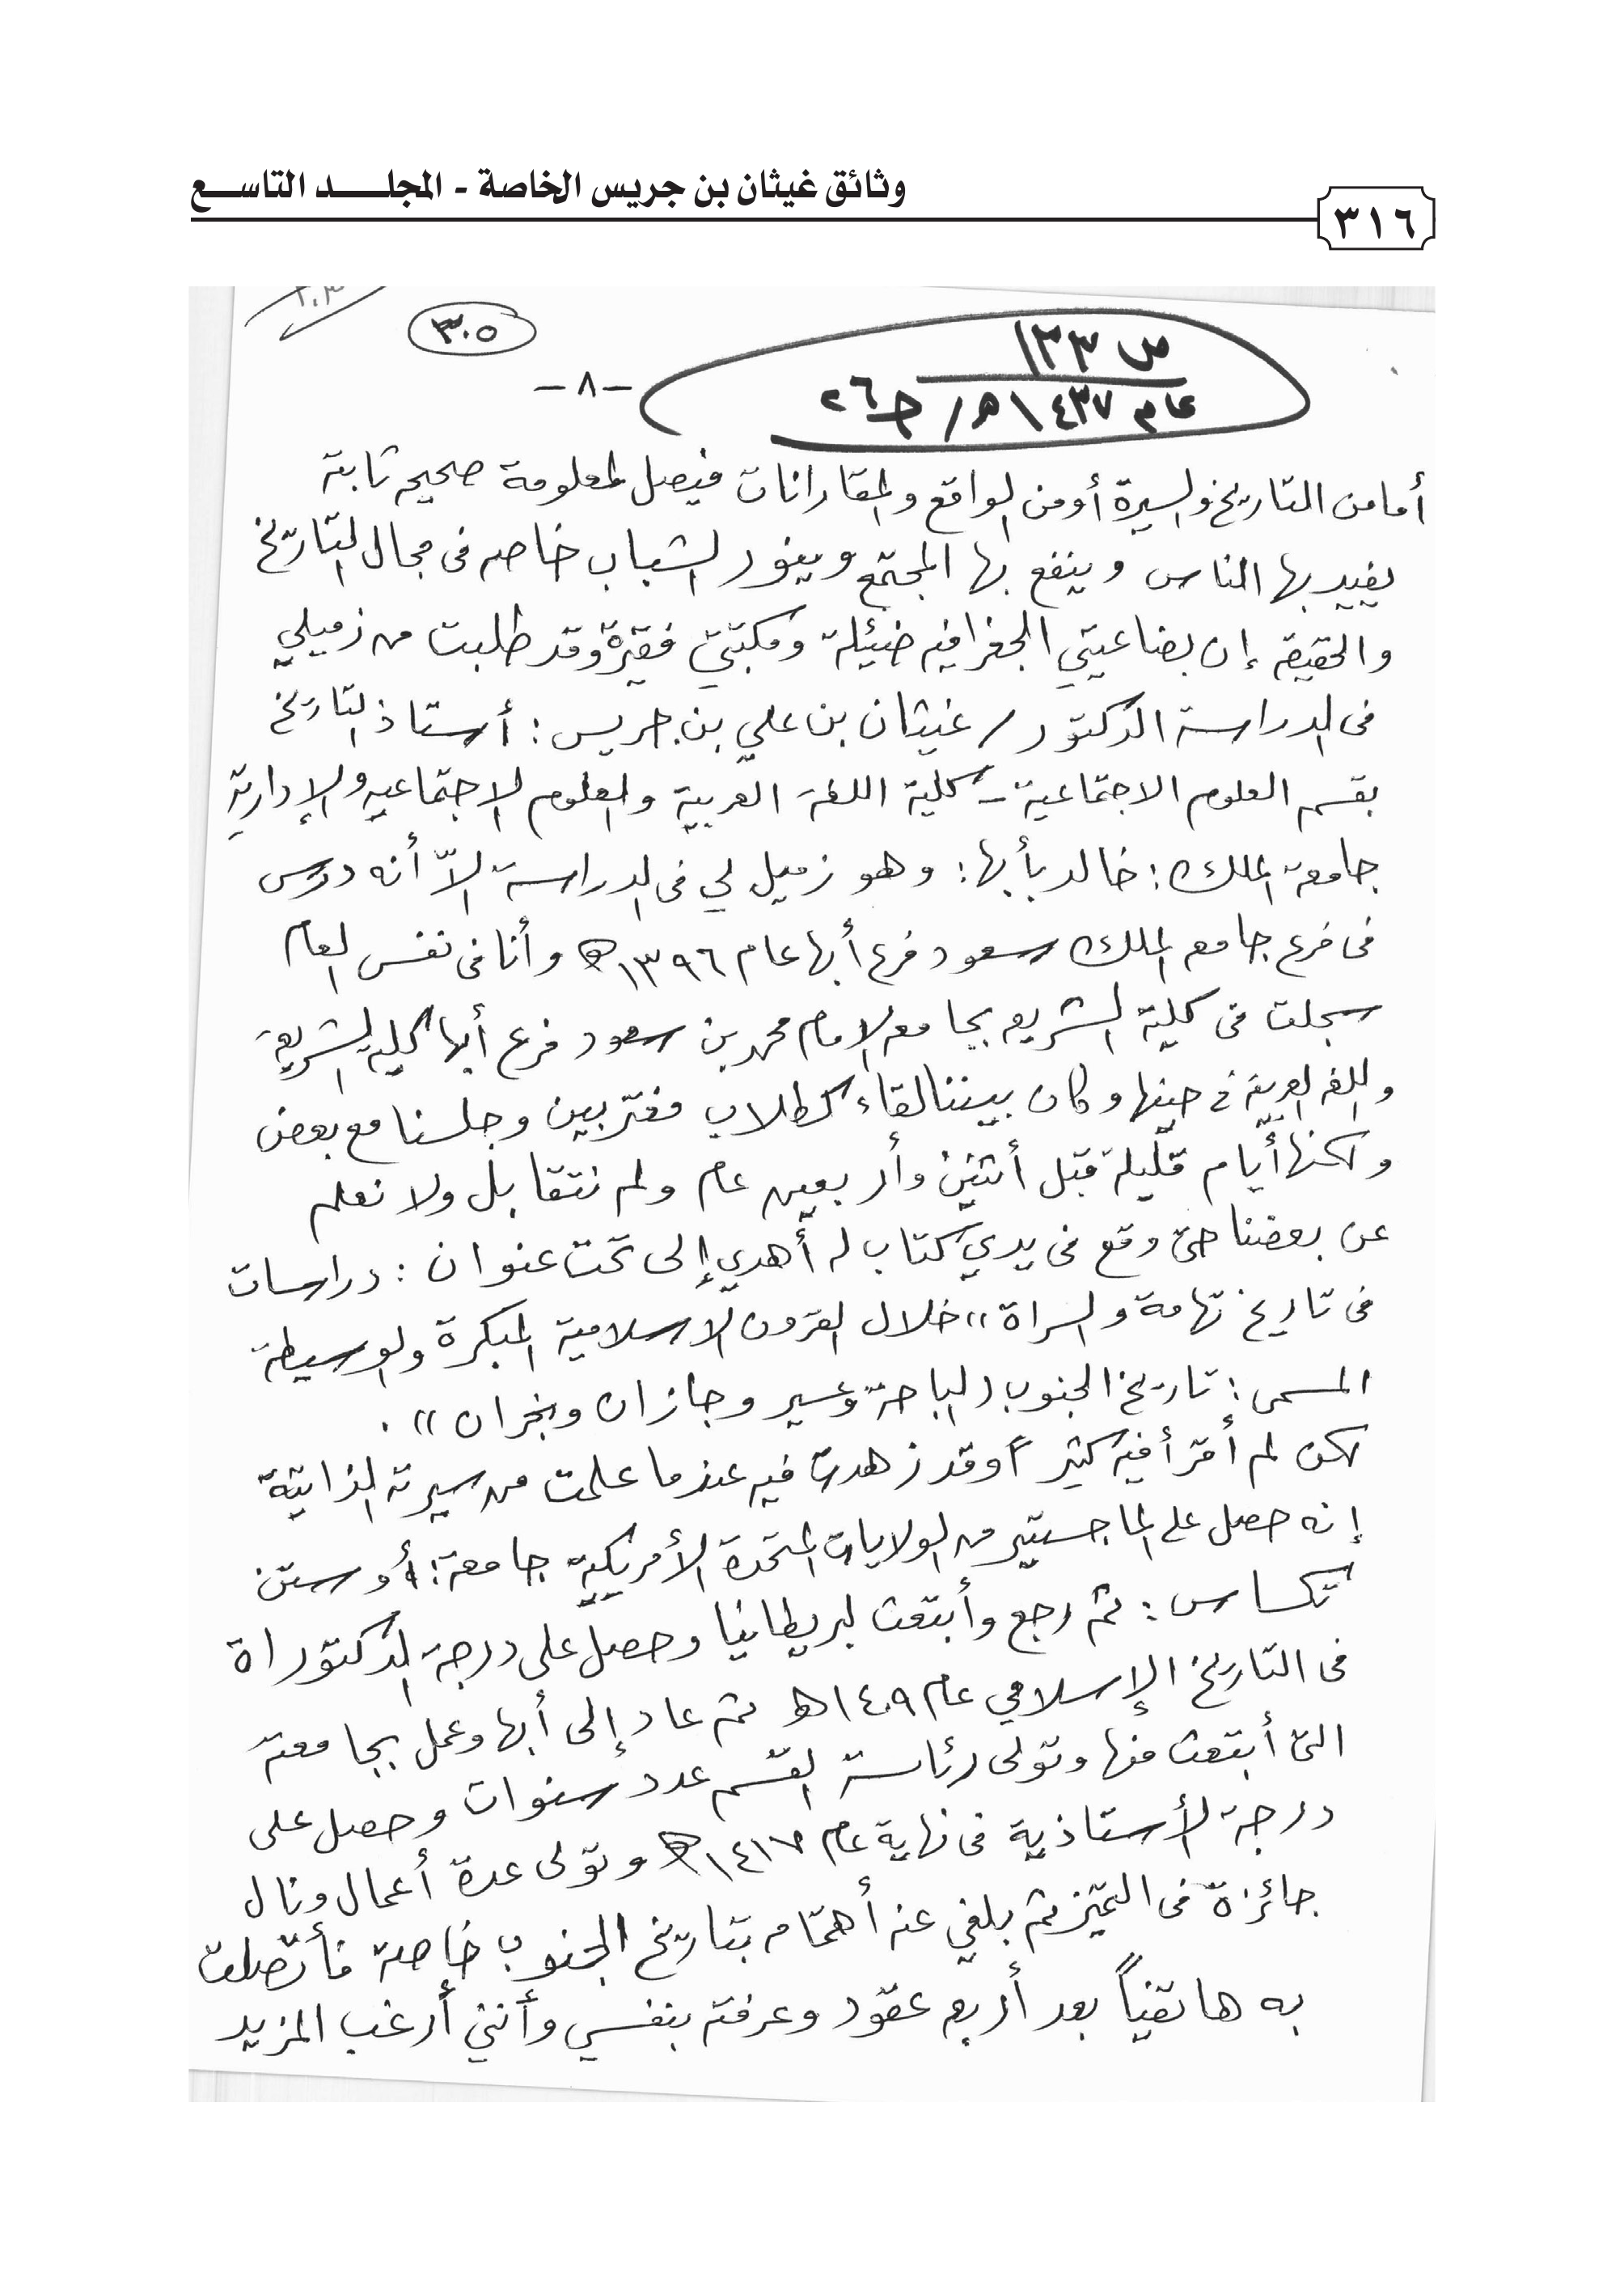 وثائق غيثان بن جريس الخاصة - المجلـــد التاســـع
٣١٦
٣٠٥
ص ١٣٣
عام ١٤٣٧هـ / جـ٢٦
-٨-
أما من التاريخ والسيرة أو من الواقع والمقارانات فيصل لمعلومة صحيحه ثابتة
يفيد بها الناس وينفع بها المجتمع وينور الشباب خاصه في مجال التاريخ
والحقيقه إن بضاعتي الجغرافيه ضئيلة ومكتبتي فقيرة وقد طلبت من زميلي
في الدراسة الدكتور / غيثان بن علي بن جريس : أستاذ التاريخ
بقسم العلوم الاجتماعية - كلية اللغة العربية والعلوم الاجتماعيه والإدارية
جامعة الملك : خالد بأبها : وهو زميل لي في الدراسة إلاّ أنه درس
في فرع جامعه الملك سعود فرع أبها عام ١٣٩٦هـ وأنا في نفس العام
سجلت في كلية الشريعه بجامعه الامام محمد بن سعود فرع أبها كلية الشريعة
واللغه العربية في حينها وكان بيننا لقاء كطلاب مغتربين وجلسنا مع بعض
ولكنها أيام قليلة قبل أثنين وأربعين عام ولم نتقابل ولا نعلم
عن بعضنا حتى وقع في يدي كتاب له أهدي إلى تحت عنوان : دراسات
في تاريخ تهامة والسراة ،، خلال القرون الاسلامية المبكرة والوسيطة
المسمى : تاريخ الجنوب ( الباحة وعسير وجازان ونجران )) .
لكن لم أقرأ فيه كثيراً وقد زهدت فيه عندما علمت من سيرته الذاتية
إنه حصل على الماجستير من الولايات المتحدة الأمريكية جامعة : أوستن
تكساس : ثم رجع وأبتعث لبريطانيا وحصل على درجة الدكتوراة
في التاريخ الإسلامي عام ١٤٠٩هـ ثم عاد إلى أبها وعمل بجامعته
التي أبتعث منها وتولى رئاسة القسم عدد سنوات وحصل على
درجة الأستاذية في نهاية عام ١٤١٧هـ وتولى عدة أعمال ونال
جائزة في التميز ثم بلغني عنه أهتمامه بتاريخ الجنوب خاصة فأتصلت
به هاتفياً بعد أربع عقود وعرفته بنفسي وأنني أرغب المزيد